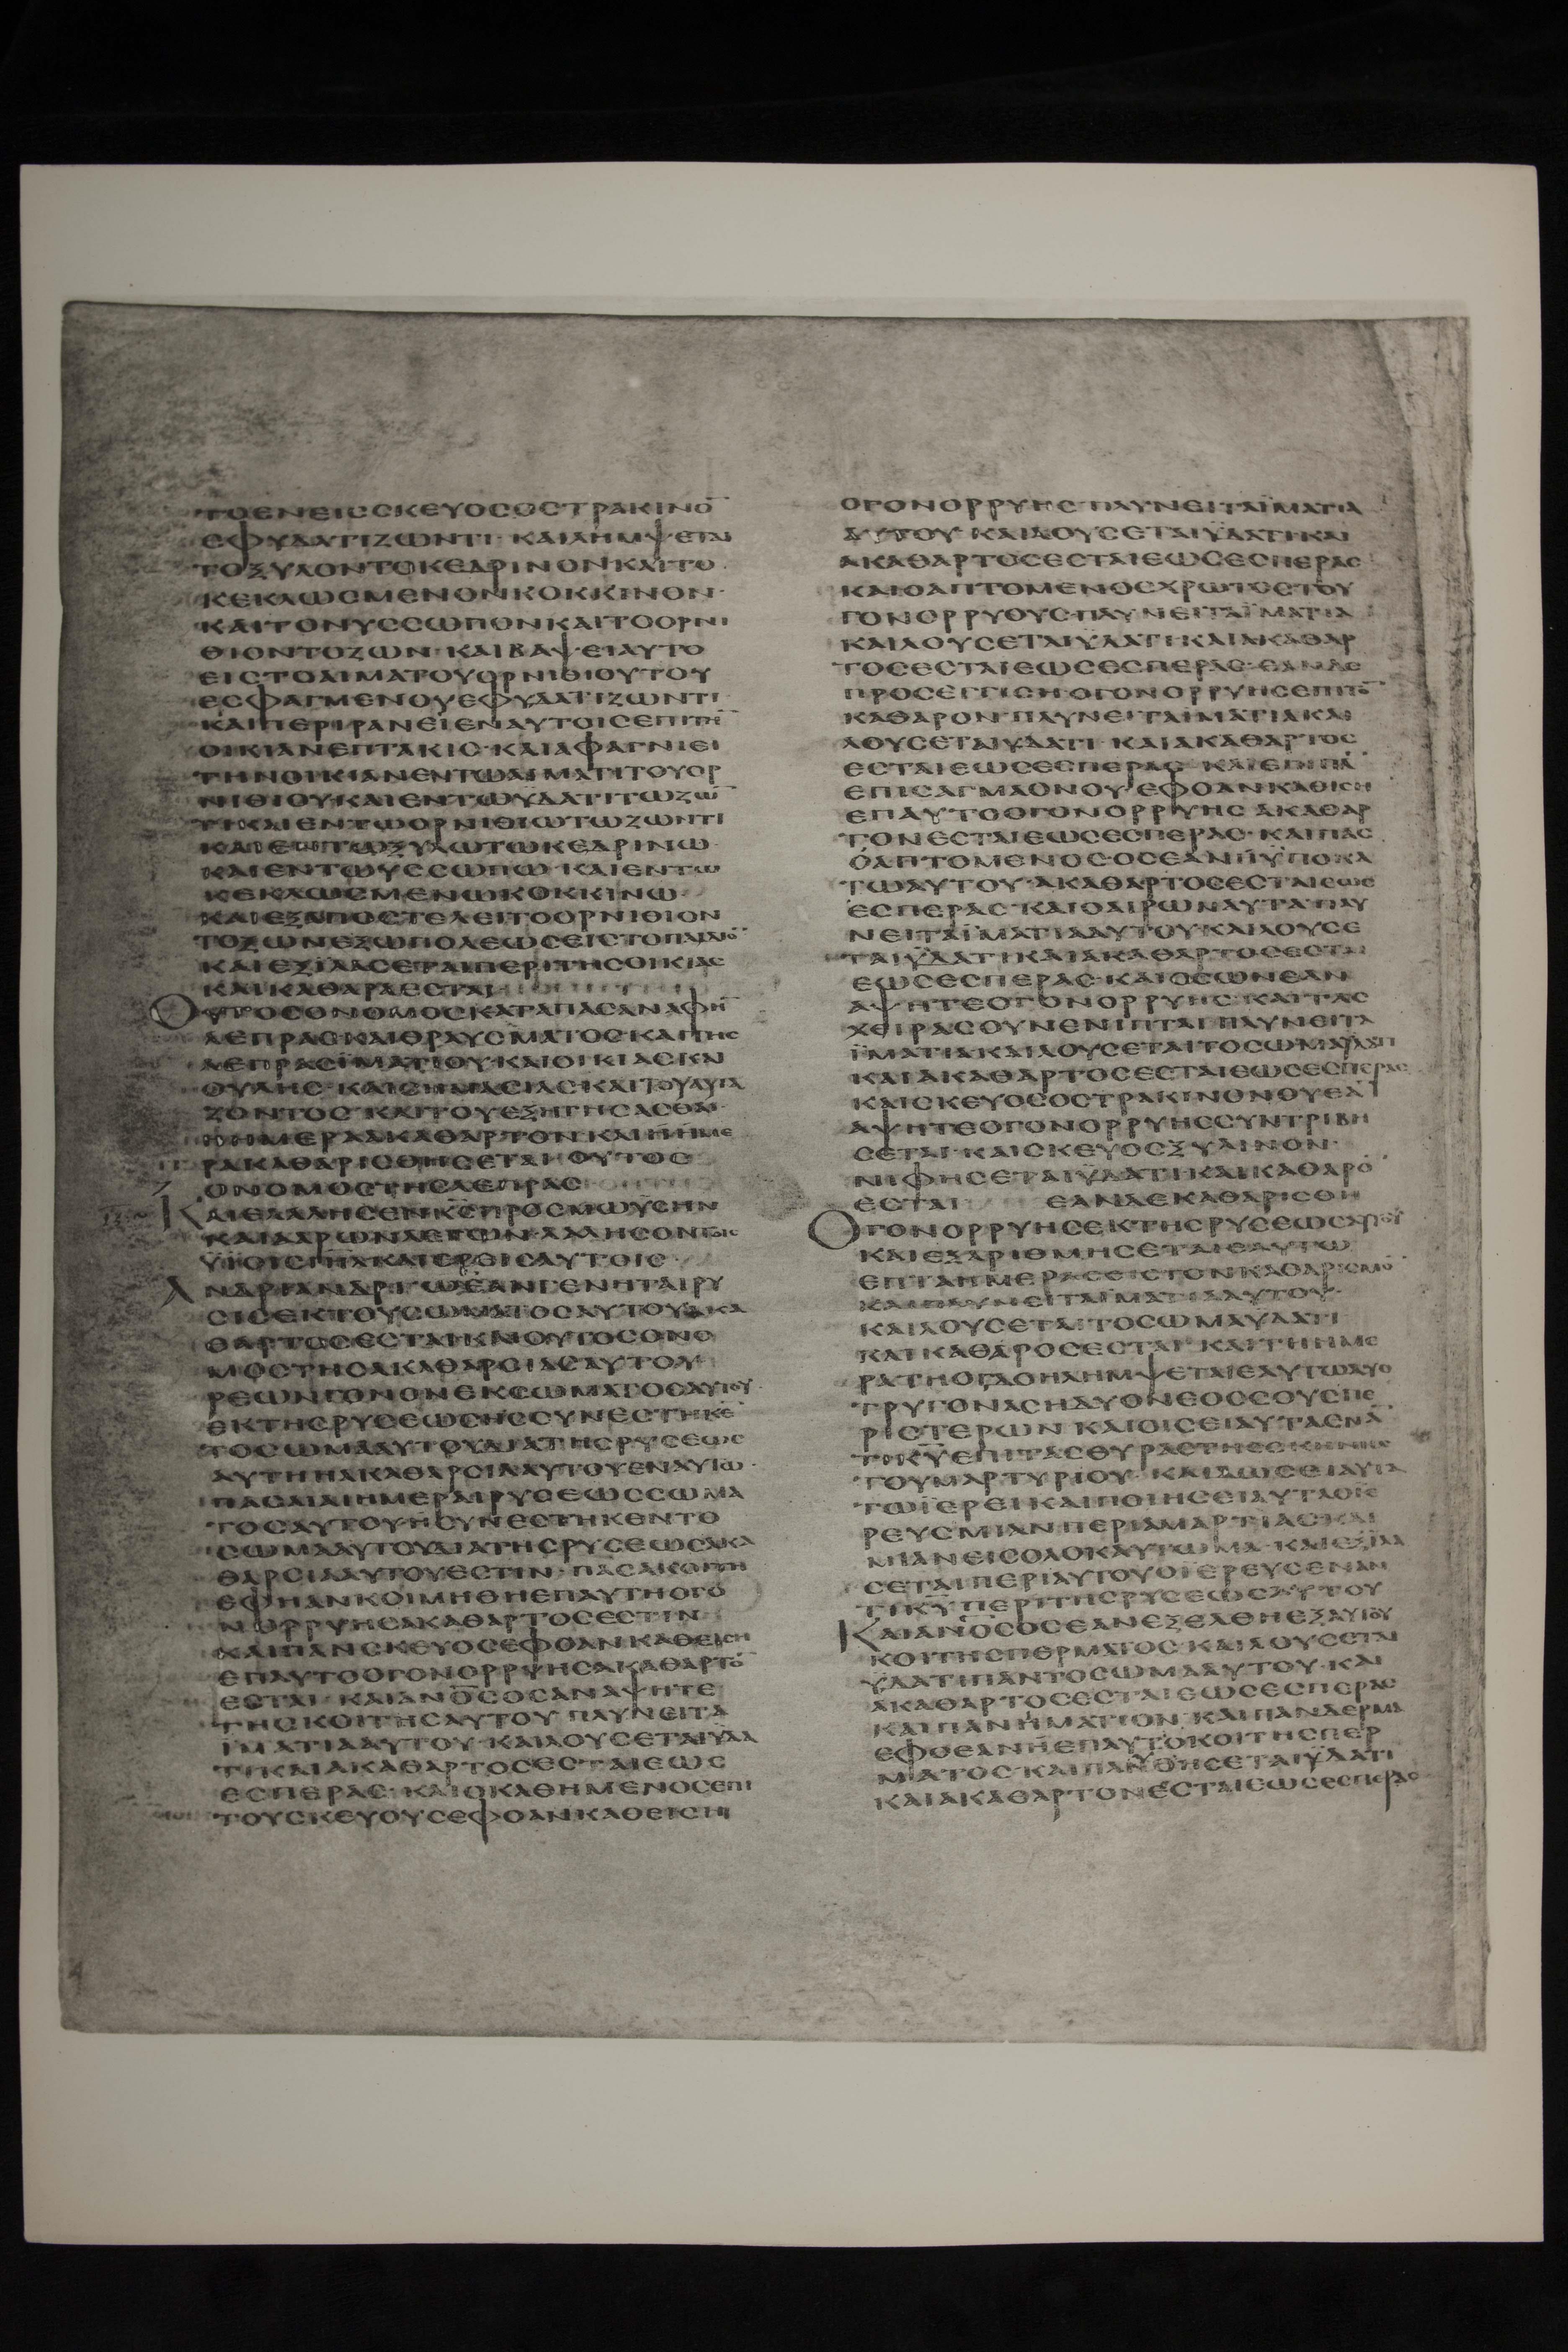 ΤΟΕΝΕΙCCΚΕΥΟCΟCΤΡΑΚΙΝΟ̅
ΕΦΥΔΑΤΙΖΩΝΤΙ· ΚΑΙΛΗΜΨΕΤΑΙ
ΤΟΞΥΛΟΝΤΟΚΕΔΡΙΝΟΝΚΑΙΤΟ
ΚΕΚΛΩCΜΕΝΟΝΚΟΚΚΙΝΟΝ·
ΚΑΙΤΟΝΥCCΩΠΟΝΚΑΙΤΟΟΡΝΙ
ΘΙΟΝΤΟΖΩΝ· ΚΑΙΒΑΨΕΙΑΥΤΟ
ΕΙCΤΟΑΙΜΑΤΟΥΟΡΝΙΘΙΟΥΤΟΥ
ΕCΦΑΓΜΕΝΟΥΕΦΥΔΑΤΙΖΩΝΤΙ·
ΚΑΙΠΕΡΙΡΑΝΕΙΕΝΑΥΤΟΙCΕΠΙΤΗ̅
ΟΙΚΙΑΝΕΠΤΑΚΙC· ΚΑΙΑΦΑΓΝΙΕΙ
ΤΗΝΟΙΚΙΑΝΕΝΤΩΑΙΜΑΤΙΤΟΥΟΡ
ΝΙΘΙΟΥΚΑΙΕΝΤΩΫΔΑΤΙΤΩΖΩ̅
ΤΙΚΑΙΕΝΤΩΟΡΝΙΘΙΩΤΩΖΩΝΤΙ
ΚΑΙΕΝΤΩΞΥΛΩΤΩΚΕΔΡΙΝΩ·
ΚΑΙΕΝΤΩΥCCΩΠΩ· ΚΑΙΕΝΤΩ
ΚΕΚΛΩCΜΕΝΩΚΟΚΚΙΝΩ·
ΚΑΙΕΞΑΠΟCΤΕΛΕΙΤΟΟΡΝΙΘΙΟΝ
ΤΟΖΩΝΕΞΩΠΟΛΕΩCΕΙCΤΟΠΑΙΔΙΟ̅
ΚΑΙΕΞΙΛΑCΕΤΑΙΠΕΡΙΤΗCΟΙΚΙΑC
ΚΑΙΚΑΘΑΡΑΕCΤΑΙ
ΟΥΤΟCΟΝΟΜΟCΚΑΤΑΠΑCΑΝΑΦΗ̅
ΛΕΠΡΑCΚΑΙΘΡΑΥCΜΑΤΟCΚΑΙΤΗC
ΛΕΠΡΑCΪΜΑΤΙΟΥ·ΚΑΙΟΙΚΙΑCΚΑΙ
ΟΥΛΗC· ΚΑΙCΗΜΑCΙΑCΚΑΙΤΟΥΑΥΓΑ
ΖΟΝΤΟC· ΚΑΙΤΟΥΕΞΗΓΗCΑCΘΑΙ·
ΗΗΜΕΡΑΑΚΑΘΑΡΤΟΝΚΑΙΗΗΜΕ
ΡΑΚΑΘΑΡΙCΘΗCΕΤΑΙ· ΟΥΤΟC
ΟΝΟΜΟCΤΗCΛΕΠΡΑC
ΚΑΙΕΛΑΛΗCΕΝΚ̅C̅ΠΡΟCΜΩΥCΗΝ
ΚΑΙΑΑΡΩΝΛΕΓΩΝ·ΛΑΛΗCΟΝΤΟΙC
ΫΙΟΙCΙ̅Η̅Λ̅ΚΑΙΕΡΕΙCΑΥΤΟΙC
ΑΝΔΡΙΑΝΔΡΙΩΕΑΝΓΕΝΗΤΑΙΡΥ
CΙCΕΚΤΟΥCΩΜΑΤΟCΑΥΤΟΥΑΚΑ
ΘΑΡΤΟCΕCΤΑΙ·ΚΑΙΟΥΤΟCΟΝΟ
ΜΟCΤΗCΑΚΑΘΑΡCΙΑCΑΥΤΟΥ
ΡΕΩΝΓΟΝΟΝΕΚCΩΜΑΤΟCΑΥΤΟΥ·
ΕΚΤΗCΡΥCΕΩCΗCCΥΝΕCΤΗΚΕ̅
ΤΟCΩΜΑΑΥΤΟΥΔΙΑΤΗCΡΥCΕΩC
ΑΥΤΗΗΑΚΑΘΑΡCΙΑΑΥΤΟΥΕΝΑΥΤΩ·
ΠΑCΑΙΑΙΗΜΕΡΑΙΡΥCΕΩCCΩΜΑ
ΤΟCΑΥΤΟΥΗCΥΝΕCΤΗΚΕΝΤΟ
CΩΜΑΑΥΤΟΥΔΙΑΤΗCΡΥCΕΩCΑΚΑ
ΘΑΡCΙΑΑΥΤΟΥΕCΤΙΝ· ΠΑCΑΚΟΙΤΗ
ΕΦΗΑΝΚΟΙΜΗΘΗΕΠΑΥΤΗΟΓΟ
ΝΟΡΡΥΗCΑΚΑΘΑΡΤΟCΕCΤΙΝ
ΚΑΙΠΑΝCΚΕΥΟCΕΦΟΑΝΚΑΘΕΙCΗ
ΕΠΑΥΤΟΟΓΟΝΟΡΡΥΗCΑΚΑΘΑΡΤΟ̅
ΕCΤΑΙ· ΚΑΙΑΝΟ̅C̅ΟCΑΝΑΨΗΤΕ
ΤΗCΚΟΙΤΗCΑΥΤΟΥ ΠΛΥΝΕΙΤΑ
ΪΜΑΤΙΑΑΥΤΟΥ·ΚΑΙΛΟΥCΕΤΑΙΫΔΑ
ΤΙΚΑΙΑΚΑΘΑΡΤΟCΕCΤΑΙΕΩC
ΕCΠΕΡΑC· ΚΑΙΟΚΑΘΗΜΕΝΟCΕΠΙ
ΤΟΥCΚΕΥΟΥCΕΦΟΑΝΚΑΘΕΙCΗ
ΟΓΟΝΟΡΡΥΗC·ΠΛΥΝΕΙΤΑΪΜΑΤΙΑ
ΑΥΤΟΥ·ΚΑΙΛΟΥCΕΤΑΙΫΔΑΤΙΚΑΙ
ΑΚΑΘΑΡΤΟCΕCΤΑΙΕΩCΕCΠΕΡΑC
ΚΑΙΟΑΠΤΟΜΕΝΟCΧΡΩΤΟCΤΟΥ
ΓΟΝΟΡΡΥΟΥC·ΠΛΥΝΕΙΤΑΪΜΑΤΙΑ
ΚΑΙΛΟΥCΕΤΑΙΫΔΑΤΙ·ΚΑΙΑΚΑΘΑΡ
ΤΟCΕCΤΑΙΕΩCΕCΠΕΡΑC·ΕΑΝΔΕ
ΠΡΟCΕΓΓΙCΗΟΓΟΝΟΡΡΥΗCΕΠΙΤΟ̅
ΚΑΘΑΡΟΝ·ΠΛΥΝΕΙΤΑΪΜΑΤΙΑΚΑΙ
ΛΟΥCΕΤΑΙΫΔΑΤΙ· ΚΑΙΑΚΑΘΑΡΤΟC
ΕCΤΑΙΕΩCΕCΠΕΡΑC· ΚΑΙΕΠΙΠΑ̅
ΕΠΙCΑΓΜΑΟΝΟΥ·ΕΦΟΑΝΚΑΘΙCΗ
ΕΠΑΥΤΟΟΓΟΝΟΡΡΥΗC ΑΚΑΘΑΡ
ΤΟΝΕCΤΑΙΕΩCΕCΠΕΡΑC· ΚΑΙΠΑC
ΟΑΠΤΟΜΕΝΟCΟCΕΑΝΗΫΠΟΚΑ
ΤΩΑΥΤΟΥ·ΑΚΑΘΑΡΤΟCΕCΤΑΙΕΩC
ΕCΠΕΡΑC·ΚΑΙΟΑΙΡΩΝΑΥΤΑΠΛΥ
ΝΕΙΤΑΪΜΑΤΙΑΑΥΤΟΥΚΑΙΛΟΥCΕ
ΤΑΙΫΔΑΤΙΚΑΙΑΚΑΘΑΡΤΟCΕCΤΑΙ
ΕΩCΕCΠΕΡΑC·ΚΑΙΟCΩΝΕΑΝ
ΑΨΗΤΕΟΓΟΝΟΡΡΥΗC·ΚΑΙΤΑC
ΧΕΙΡΑCΟΥΝΕΝΙΠΤΑΙ·ΠΛΥΝΕΙΤΑ
ΪΜΑΤΙΑΚΑΙΛΟΥCΕΤΑΙΤΟCΩΜΑΫΔΑΤΙ
ΚΑΙΑΚΑΘΑΡΤΟCΕCΤΑΙΕΩCΕCΠΕΡΑC
ΚΑΙCΚΕΥΟCΟCΤΡΑΚΙΝΟΝΟΥΕΑ̅
ΑΨΗΤΕΟΓΟΝΟΡΡΥΗCCΥΝΤΡΙΒΗ
CΕΤΑΙ·ΚΑΙCΚΕΥΟCΞΥΛΙΝΟΝ·
ΝΙΦΗCΕΤΑΙΫΔΑΤΙ·ΚΑΙΚΑΘΑΡΟ̅
ΕCΤΑΙ ΕΑΝΔΕΚΑΘΑΡΙCΘΗ
ΟΓΟΝΟΡΡΥΗCΕΚΤΗCΡΥCΕΩCΑΥΤΟΥ
ΚΑΙΕΞΑΡΙΘΜΗCΕΤΑΙΕΑΥΤΩ
ΕΠΤΑΗΜΕΡΑCΕΙCΤΟΝΚΑΘΑΡΙCΜΟ̅
ΚΑΙΠΛΥΝΕΙΤΑΪΜΑΤΙΑΑΥΤΟΥ·
ΚΑΙΛΟΥCΕΤΑΙΤΟCΩΜΑΫΔΑΤΙ
ΚΑΙΚΑΘΑΡΟCΕCΤΑΙ· ΚΑΙΤΗΗΜΕ
ΡΑΤΗΟΓΔΟΗΛΗΜΨΕΤΑΙΕΑΥΤΩΔΥΟ
ΤΡΥΓΟΝΑCΗΔΥΟΝΕΟCCΟΥCΠΕ
ΡΙCΤΕΡΩΝ· ΚΑΙΟΙCΕΙΑΥΤΑΕΝΑ̅
ΤΙΚ̅Υ̅ΕΠΙΤΑCΘΥΡΑCΤΗCCΚΗΝΗC
ΤΟΥΜΑΡΤΥΡΙΟΥ· ΚΑΙΔΩCΕΙΑΥΤΑ
ΤΩΪΕΡΕΙ·ΚΑΙΠΟΙΗCΕΙΑΥΤΑΟΪΕ
ΡΕΥCΜΙΑΝΠΕΡΙΑΜΑΡΤΙΑCΚΑΙ
ΜΙΑΝΕΙCΟΛΟΚΑΥΤΩΜΑ·ΚΑΙΕΞΙΛΑ
CΕΤΑΙΠΕΡΙΑΥΤΟΥΟΪΕΡΕΥCΕΝΑΝ
ΤΙΚ̅Υ̅ΠΕΡΙΤΗCΡΥCΕΩCΑΥΤΟΥ
ΚΑΙΑΝΟ̅C̅ΟCΕΑΝΕΞΕΛΘΗΕΞΑΥΤΟΥ
ΚΟΙΤΗCΠΕΡΜΑΤΟC·ΚΑΙΛΟΥCΕΤΑΙ
ΫΔΑΤΙΠΑΝΤΟCΩΜΑΑΥΤΟΥ·ΚΑΙ
ΑΚΑΘΑΡΤΟCΕCΤΑΙΕΩCΕCΠΕΡΑC
ΚΑΙΠΑΝΗΜΑΤΙΟΝ·ΚΑΙΠΑΝΔΕΡΜΑ
ΕΦΟΕΑΝΗΕΠΑΥΤΟΚΟΙΤΗCΠΕΡ
ΜΑΤΟC·ΚΑΙΠΛΥΘΗCΕΤΑΙΫΔΑΤΙ
ΚΑΙΑΚΑΘΑΡΤΟΝΕCΤΑΙΕΩCΕCΠΕΡΑC